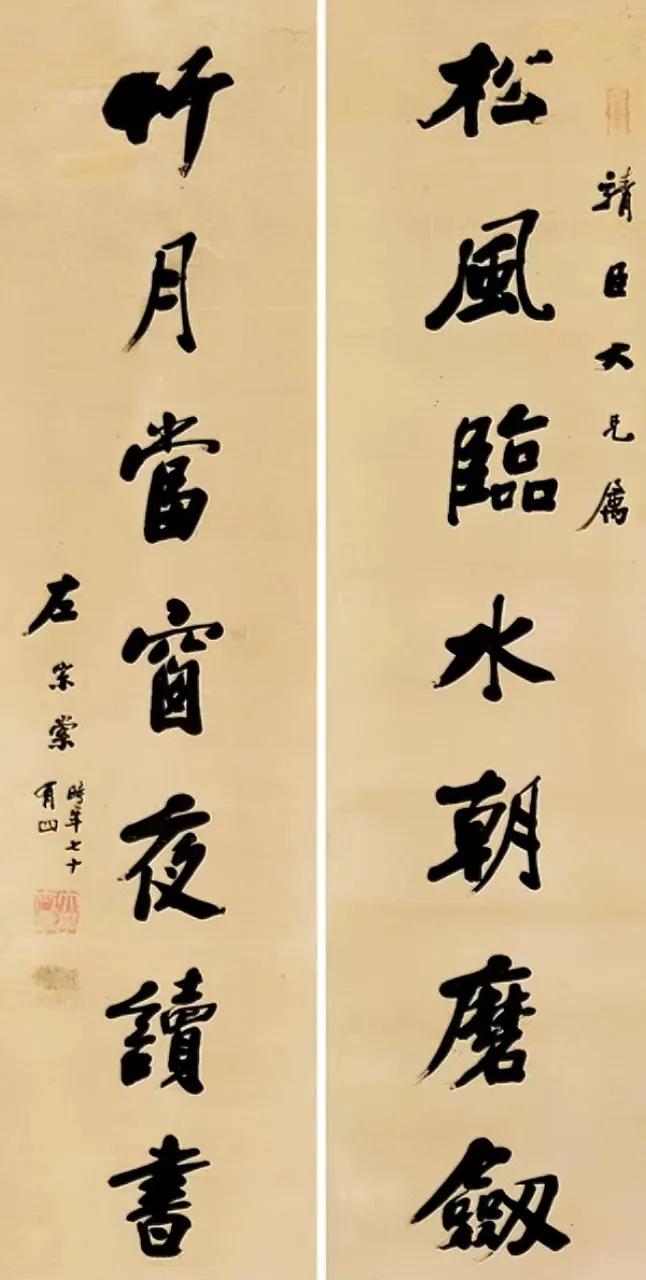 靖臣大兄属
松風臨水朝磨劔
竹月當窗夜讀書
左宗棠時年七十有四